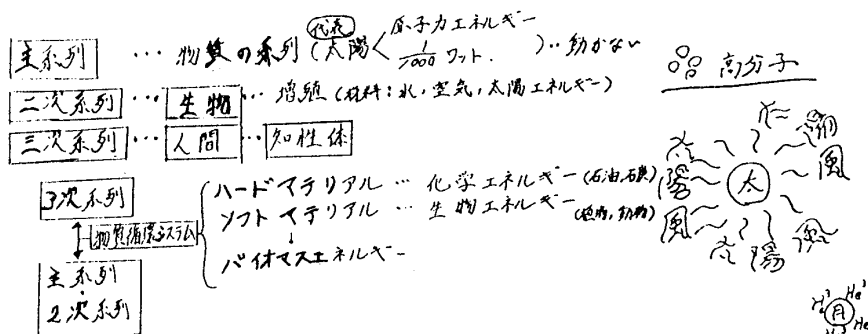 主系列 … 物質の系列 (代表 太陽 < 原子力エネルギー 1/1000 ワット. ) ‥ 動かない
二次系列 … 生物 … 増殖 (材料:水,空気,太陽エネルギー)
三次系列 … 人間 … 知性体
3次系列
物質循環システム
主系列
2次系列
ハードマテリアル … 化学エネルギー (石油,石炭)
ソフトマテリアル … 生物エネルギー (植物,動物)
↓
バイオマスエネルギー
高分子
太陽風
太陽風
太陽風
太
月